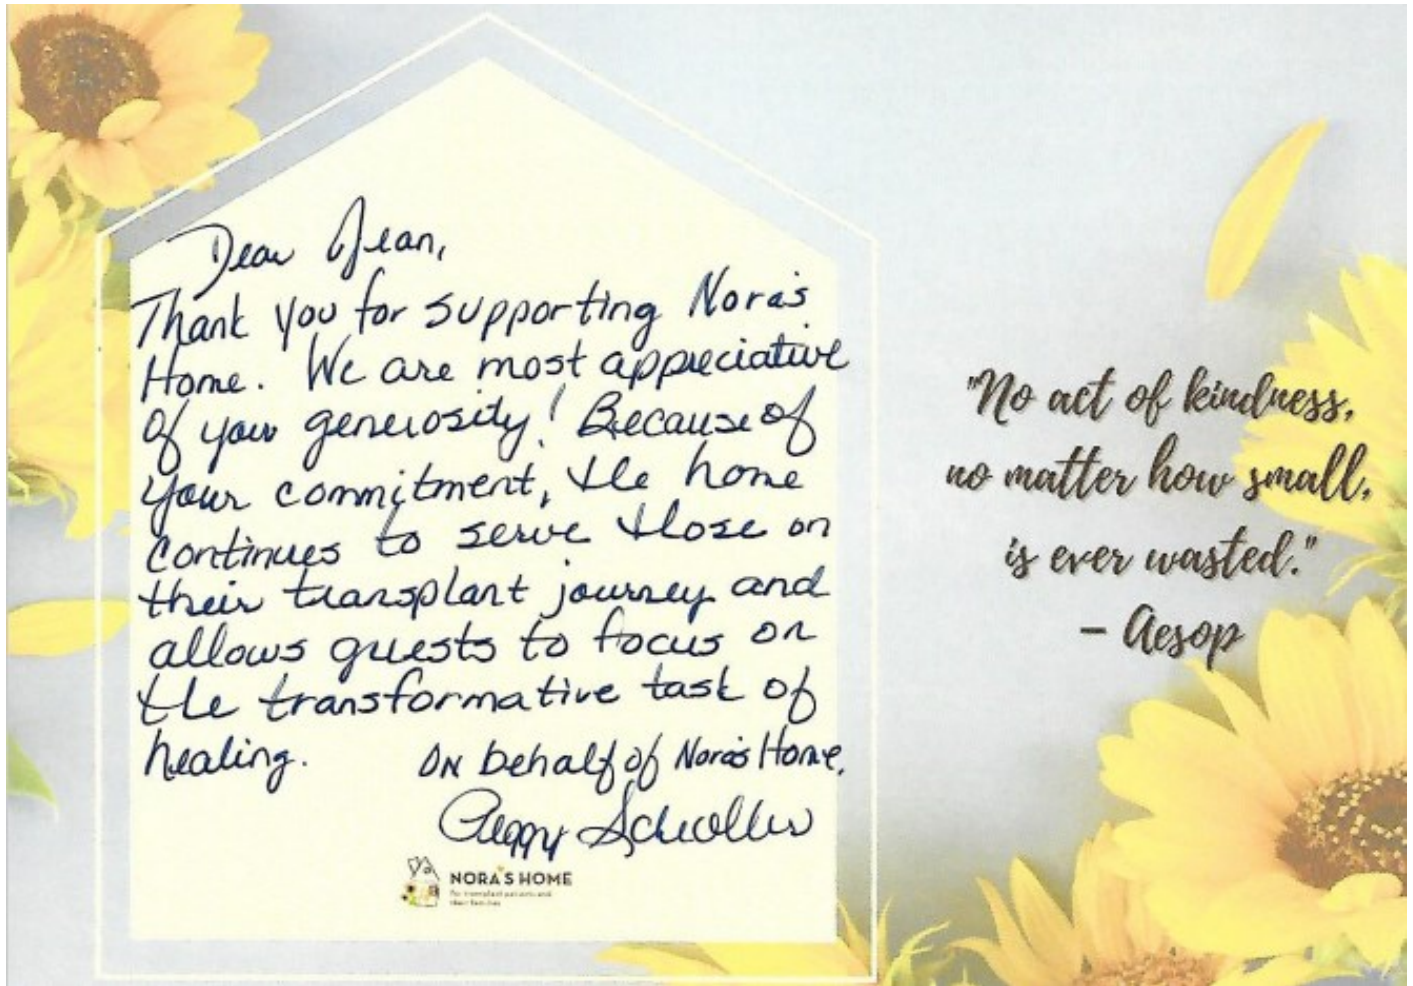 Dear Jean,
Thank you for supporting Nora's
Home. We are most appreciative
of your generosity! Because of
your commitment, the home
continues to serve those on
their transplant journey and
allows guests to focus on
the transformative task of
healing.
On behalf of Nora's Home,
Peggy
NORA'S HOME
for transplant patients and
their families
"No act of kindness,
no matter how small,
is ever wasted."
– Aesop